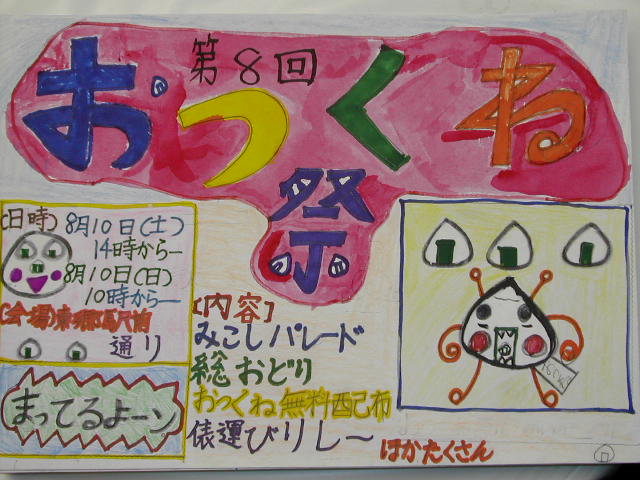 第8回
おっくね
祭
(日時) 8月10日(土)
14時から—
8月10日(日)
10時から—
(会場)東郷駅前
通り
まってるよーン
[内容]
みこしパレード
総おどり
おっくね無料配布
俵運びリレ〜
ほかたくさん